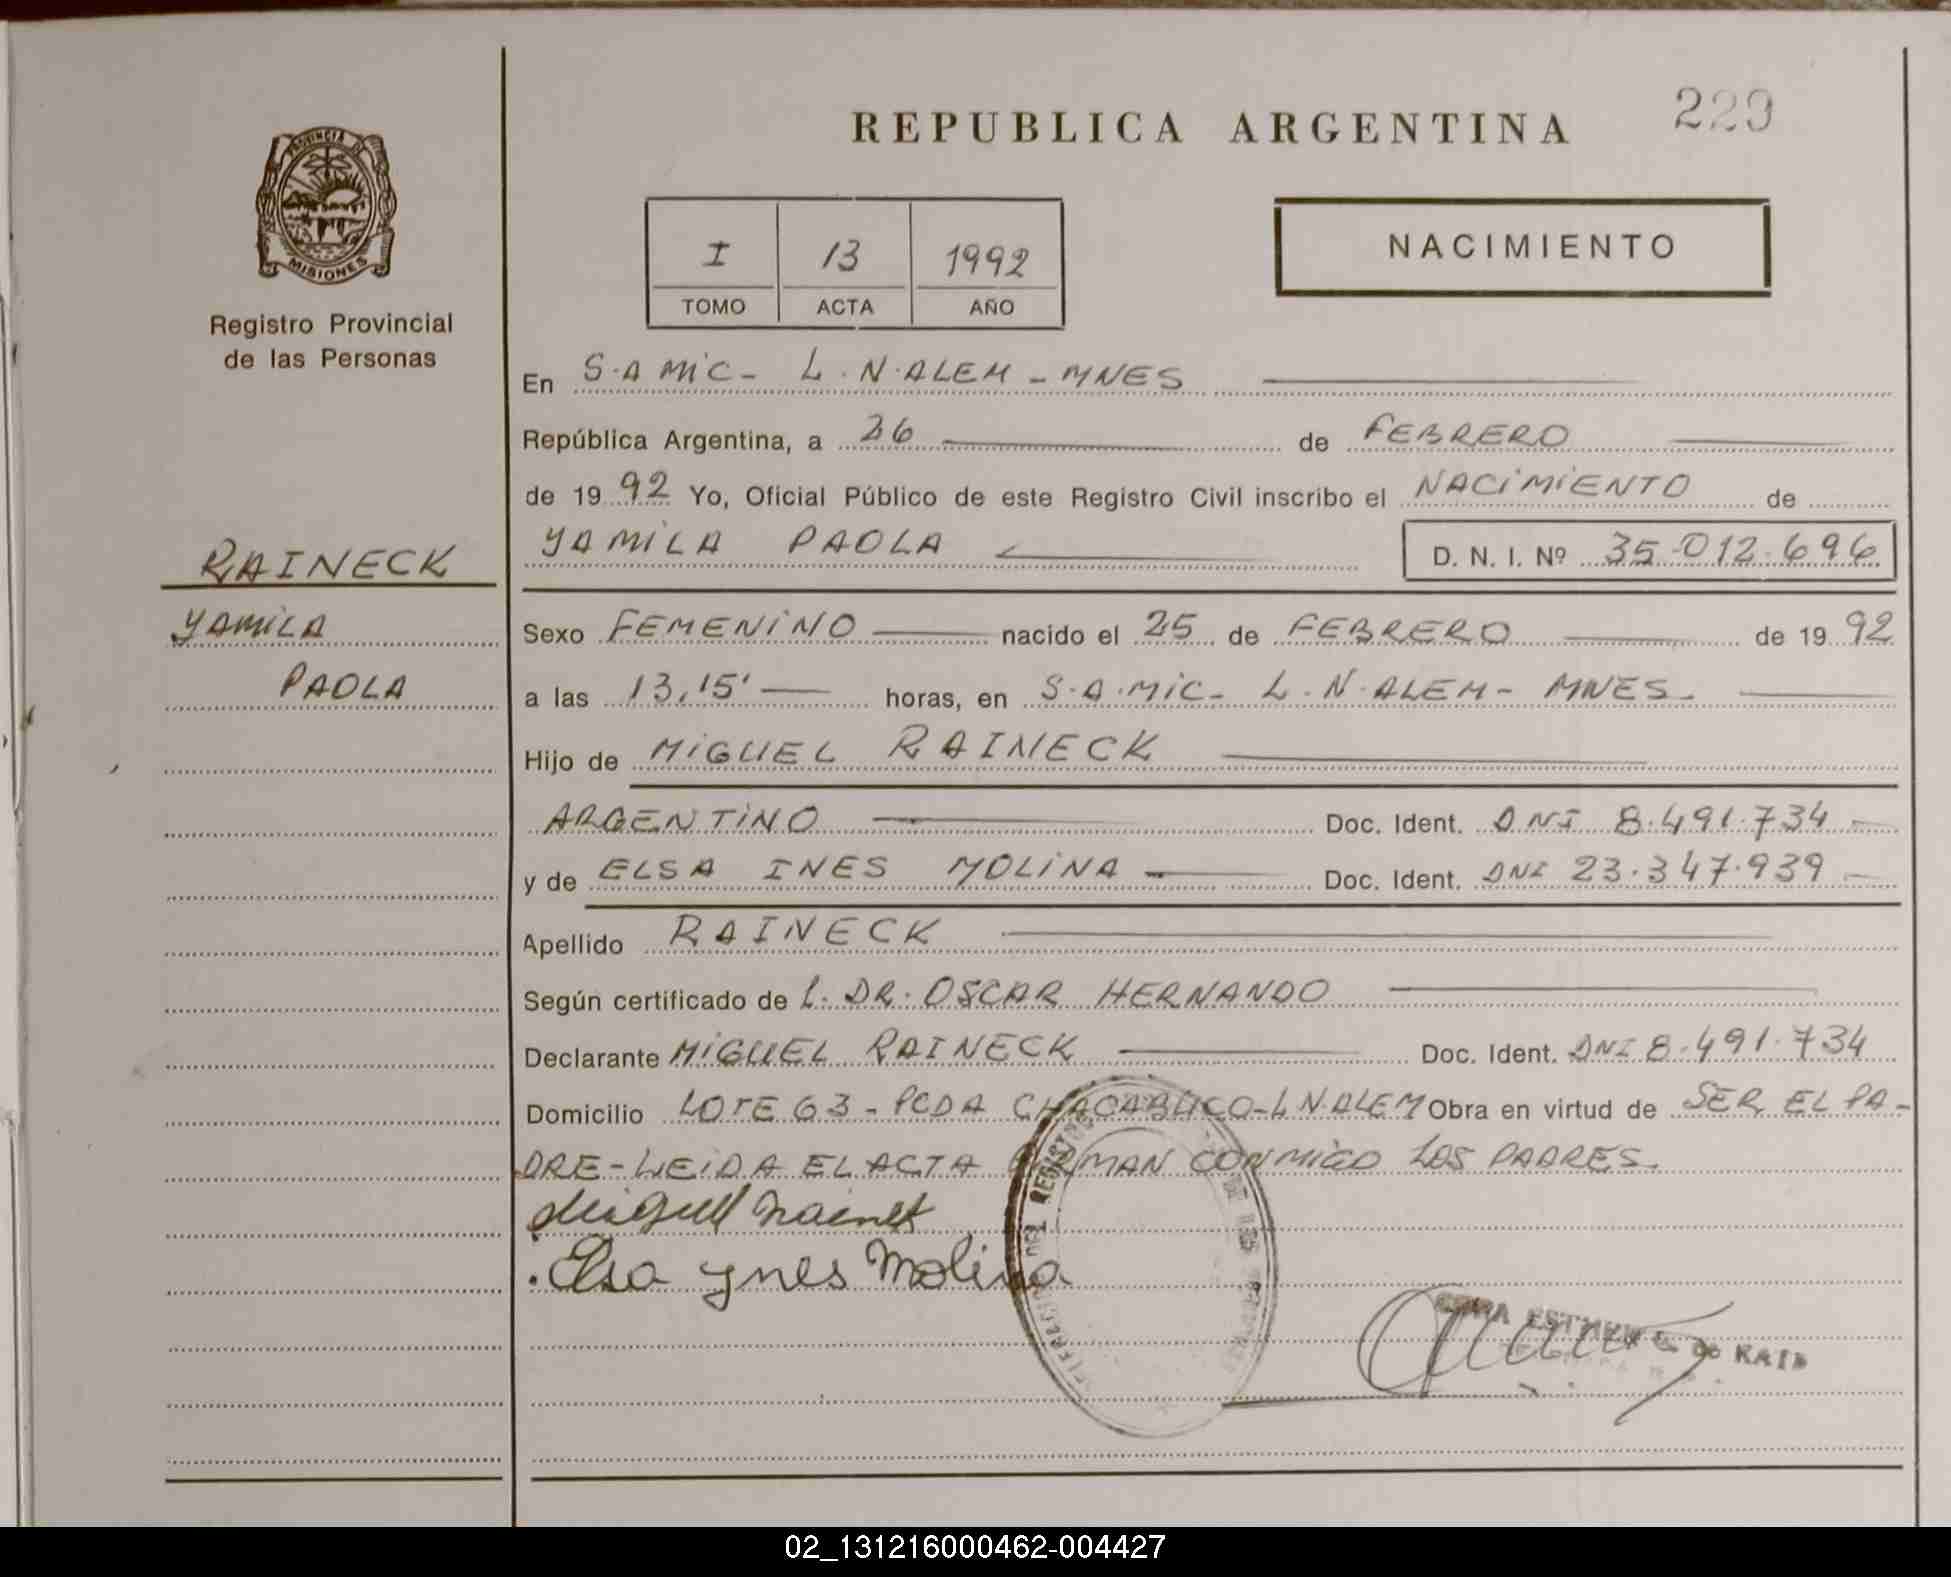 REPUBLICA ARGENTINA
229
PROVINCIA DE
MISIONES
Registro Provincial
de las Personas
I 13 1992
TOMO ACTA AÑO
NACIMIENTO
En S.A MIC- L.N.ALEM-MNES
República Argentina, a 26 de FEBRERO
de 1992 Yo, Oficial Público de este Registro Civil inscribo el NACIMIENTO de
YAMILA PAOLA D. N. I. Nº 35.012.696
RAINECK
YAMILA
PAOLA
Sexo FEMENINO nacido el 25 de FEBRERO de 1992
a las 13,15' horas, en S.A.MIC- L.N.ALEM- MNES-
Hijo de MIGUEL RAINECK
ARGENTINO Doc. Ident. DNI 8.491.734-
y de ELSA INES MOLINA Doc. Ident. DNI 23.347.939-
Apellido RAINECK
Según certificado de L. DR. OSCAR HERNANDO
Declarante MIGUEL RAINECK Doc. Ident. DNI 8.491.734
Domicilio LOTE 63-PCDA CHACABUCO-L N.ALEM Obra en virtud de SER EL PA-
DRE-LEIDA EL ACTA FIRMAN CONMIGO LOS PADRES.
Miguel
Elsa ynes Molina
REGISTRO
02_131216000462-004427